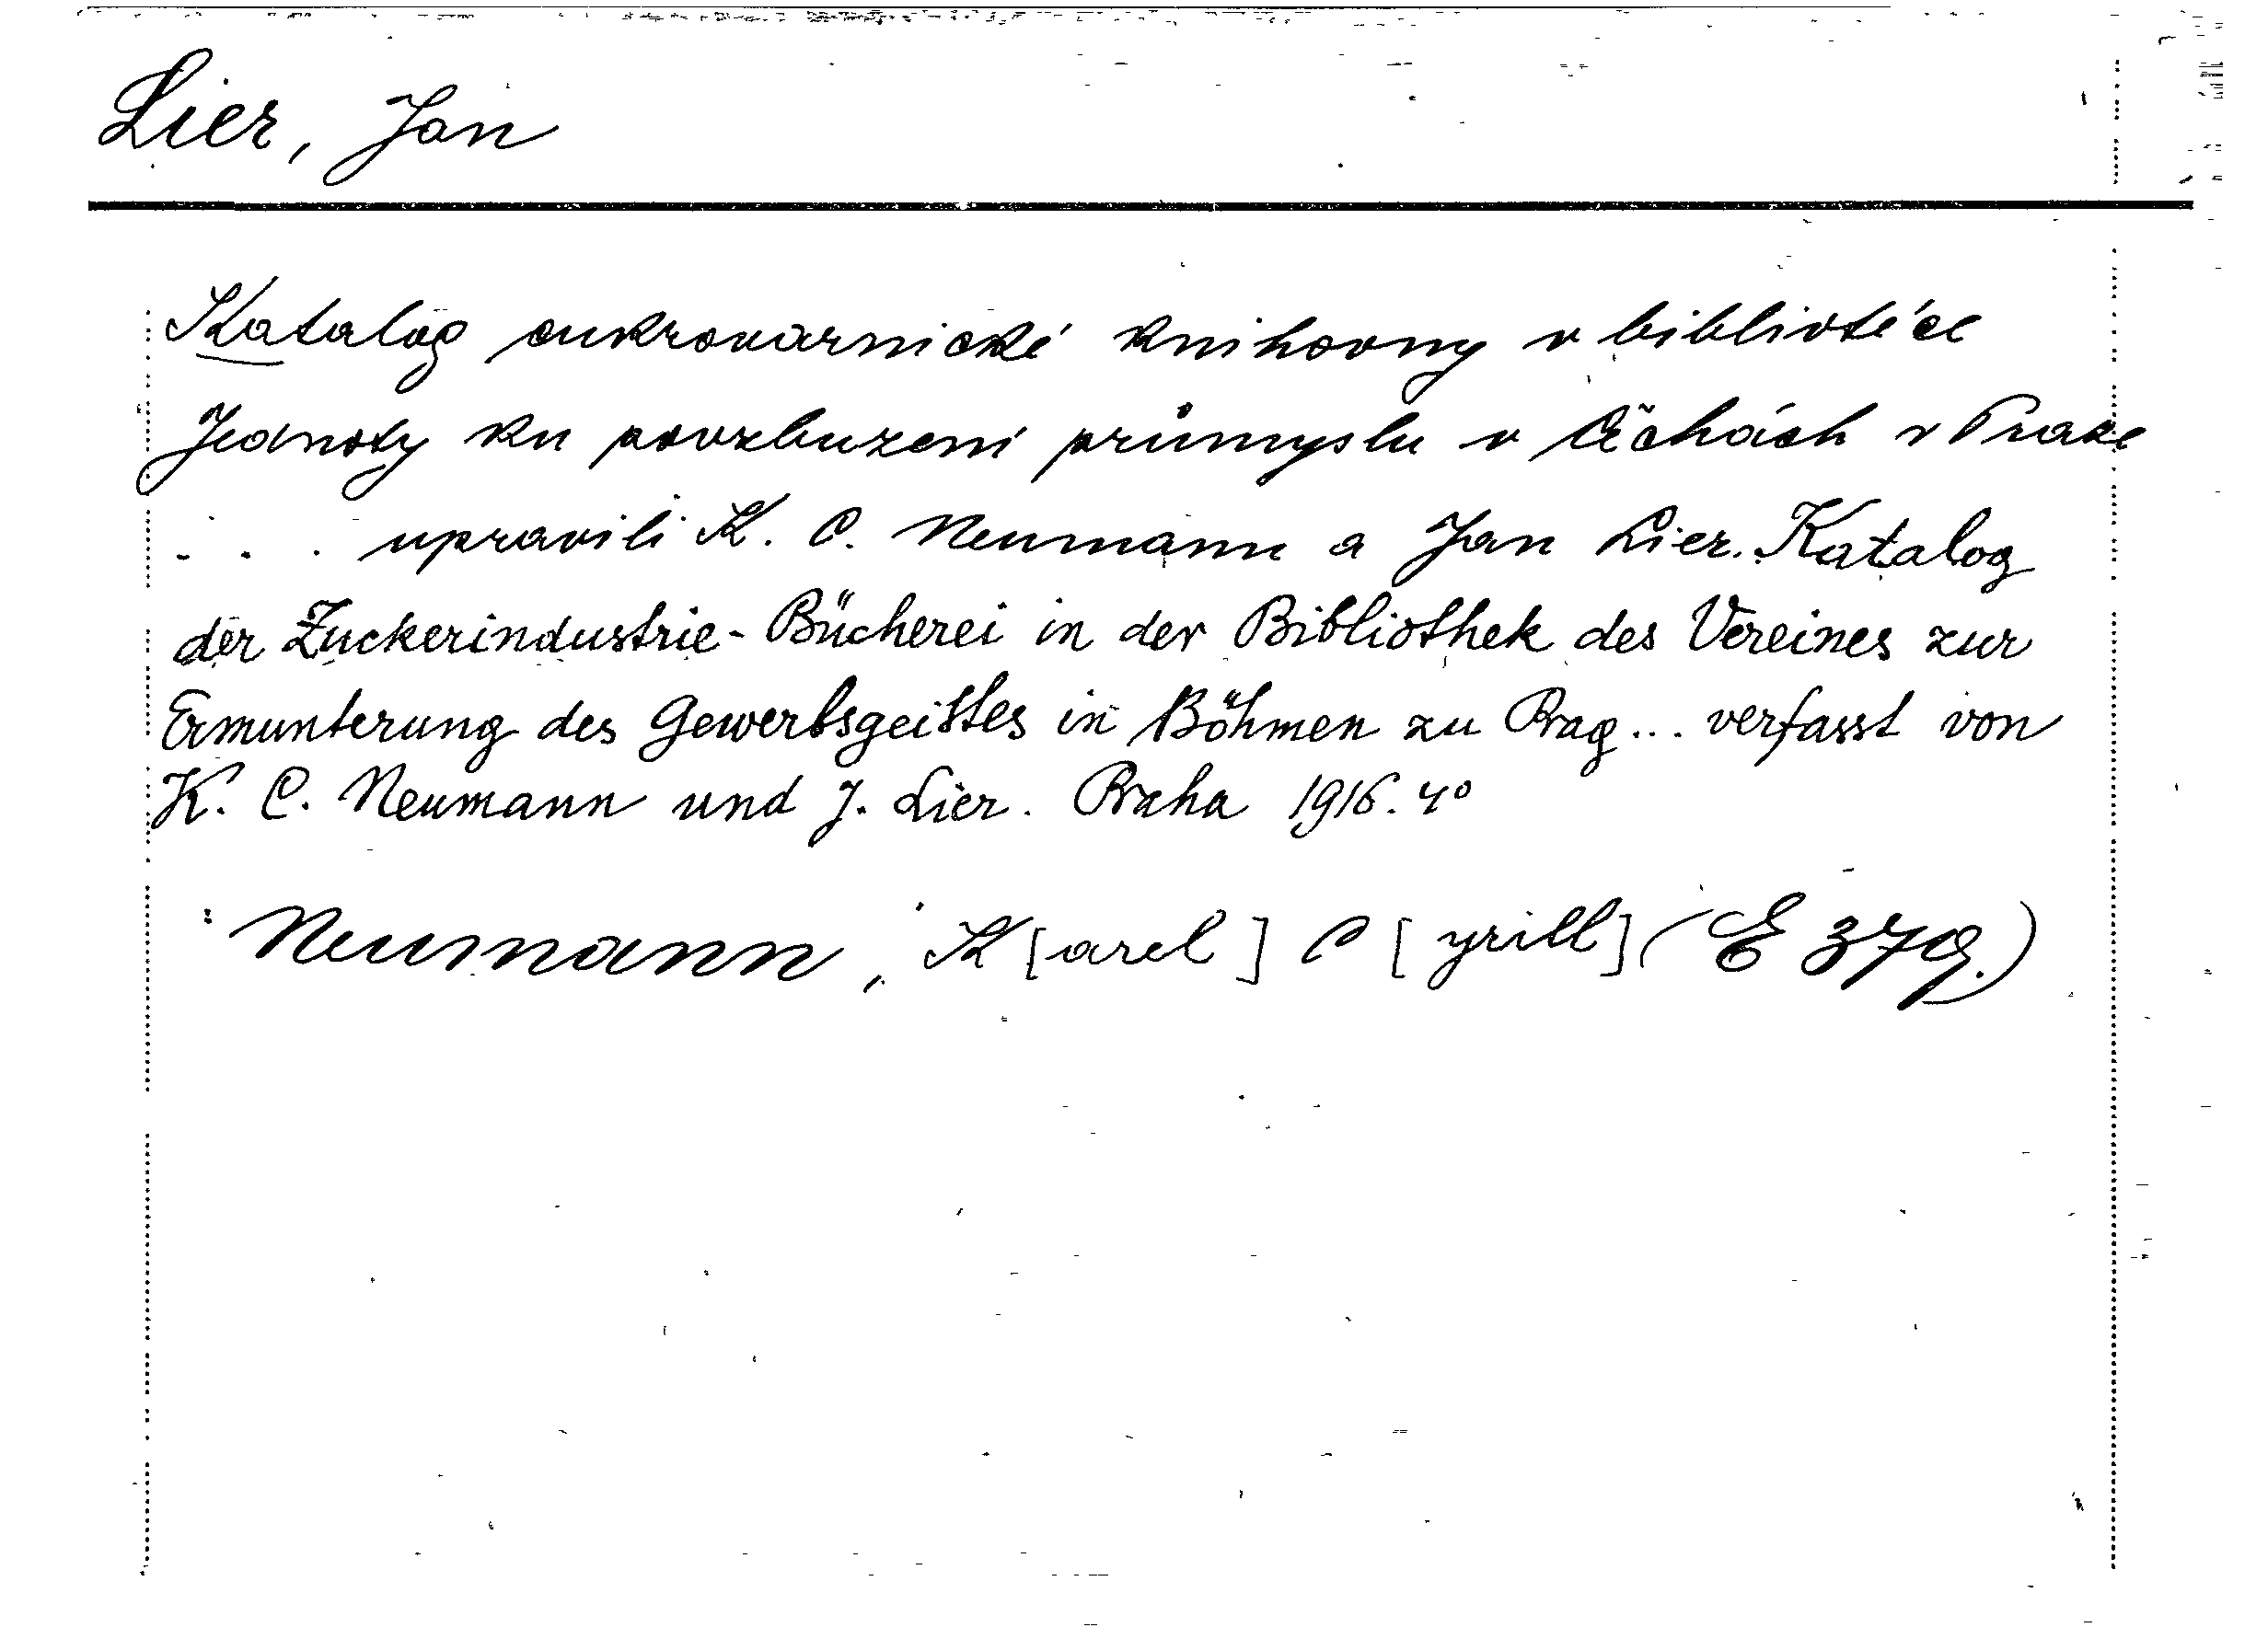 Lier, Jan
Katalog cukrovarnické knihovny v bibliotéce
Jednoty ku povzbuzení průmyslu v Čechách v Praze
... upravili K. C. Neumann a Jan Lier. Katalog
der Zuckerindustrie-Bücherei in der Bibliothek des Vereines zur
Ermunterung des Gewerbsgeistes in Böhmen zu Prag ... verfasst von
K. C. Neumann und J. Lier. Praha 1916. 4°
Neumann, K[arel] C[yrill] (E 379.)